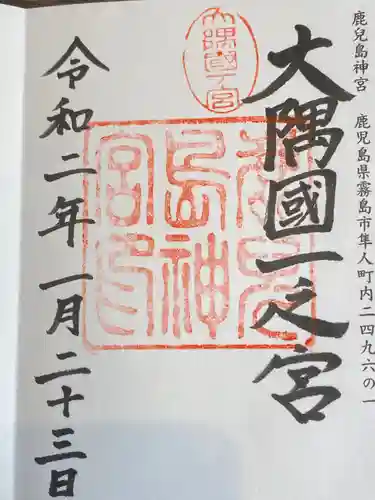 鹿兒島神宮 鹿児島県霧島市隼人町内二四九六の一
大隅國一之宮
大隅國一宮
鹿兒島神宮印
令和二年一月二十三日